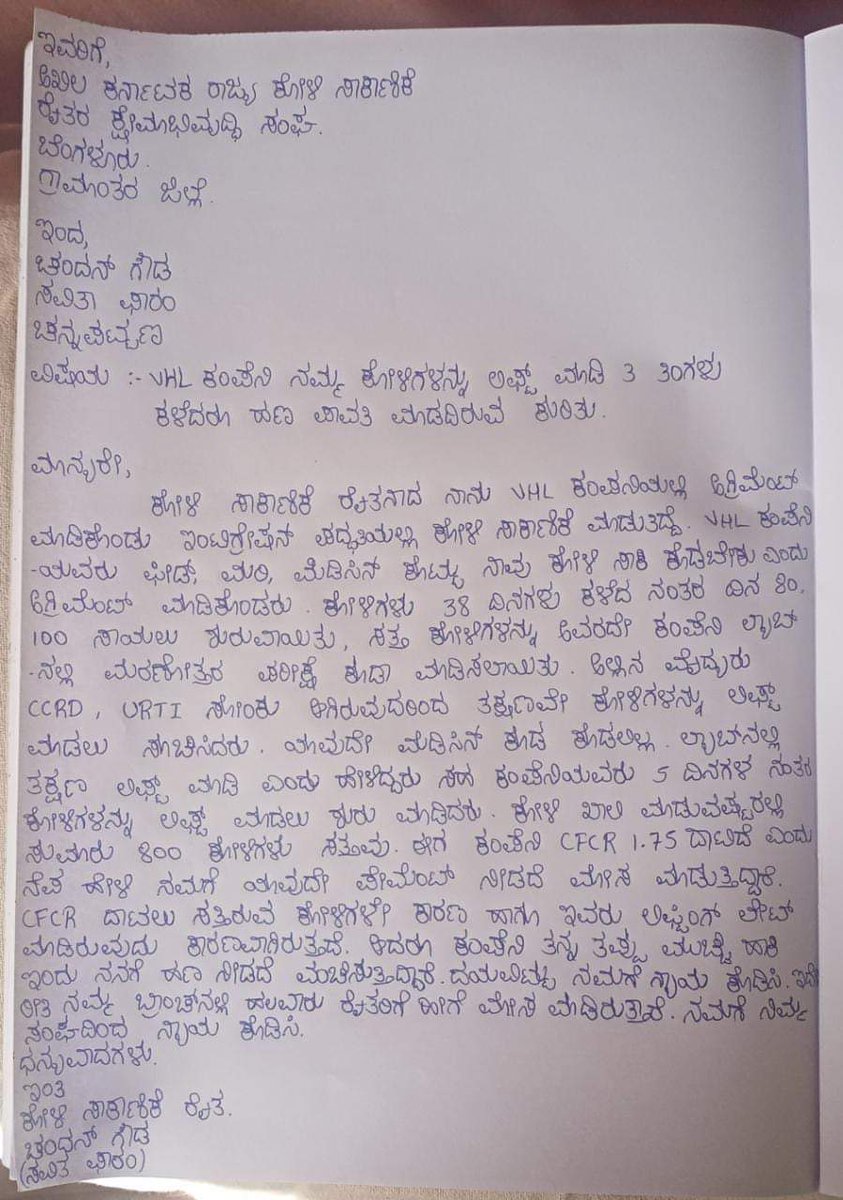 ಇವರಿಗೆ,
ಅಖಿಲ ಕರ್ನಾಟಕ ರಾಜ್ಯ ಕೋಳಿ ಸಾಕಾಣಿಕೆ
ರೈತರ ಕ್ಷೇಮಾಭಿವೃದ್ಧಿ ಸಂಘ.
ಬೆಂಗಳೂರು.
ಗ್ರಾಮಾಂತರ ಜಿಲ್ಲೆ.
ಇಂದ,
ಚಂದನ್ ಗೌಡ
ಸವಿತಾ ಫಾರಂ
ಚನ್ನಪಟ್ಟಣ
ವಿಷಯ :- VHL ಕಂಪೆನಿ ನಮ್ಮ ಕೋಳಿಗಳನ್ನು ಲಿಫ್ಟ್ ಮಾಡಿ 3 ತಿಂಗಳು
ಕಳೆದರೂ ಹಣ ಪಾವತಿ ಮಾಡದಿರುವ ಕುರಿತು.
ಮಾನ್ಯರೇ,
ಕೋಳಿ ಸಾಕಾಣಿಕೆ ರೈತನಾದ ನಾನು VHL ಕಂಪನಿಯಲ್ಲಿ ಅಗ್ರಿಮೆಂಟ್
ಮಾಡಿಕೊಂಡು ಇಂಟಿಗ್ರೇಷನ್ ಪದ್ಧತಿಯಲ್ಲಿ ಕೋಳಿ ಸಾಕಾಣಿಕೆ ಮಾಡುತಿದ್ದೆ. VHL ಕಂಪೆನಿ
-ಯವರು ಫೀಡ್, ಮರಿ, ಮೆಡಿಸಿನ್ ಕೊಟ್ಟು ನಾವು ಕೋಳಿ ಸಾಕಿ ಕೊಡಬೇಕು ಎಂದು
ಅಗ್ರಿಮೆಂಟ್ ಮಾಡಿಕೊಂಡರು. ಕೋಳಿಗಳು 38 ದಿನಗಳು ಕಳೆದ ನಂತರ ದಿನ 80,
100 ಸಾಯಲು ಶುರುವಾಯಿತು, ಸತ್ತ ಕೋಳಿಗಳನ್ನು ಅವರದೇ ಕಂಪೆನಿ ಲ್ಯಾಬ್
-ನಲ್ಲಿ ಮರಣೋತ್ತರ ಪರೀಕ್ಷೆ ಕೂಡಾ ಮಾಡಿಸಲಾಯಿತು. ಅಲ್ಲಿನ ವೈದ್ಯರು
CCRD, URTI ಸೋಂಕು ಆಗಿರುವುದರಿಂದ ತಕ್ಷಣವೇ ಕೋಳಿಗಳನ್ನು ಲಿಫ್ಟ್
ಮಾಡಲು ಸೂಚಿಸಿದರು. ಯಾವುದೇ ಮೆಡಿಸಿನ್ ಕೂಡ ಕೊಡಲಿಲ್ಲ. ಲ್ಯಾಬ್‌ನಲ್ಲಿ
ತಕ್ಷಣ ಲಿಫ್ಟ್ ಮಾಡಿ ಎಂದು ಹೇಳಿದ್ದರು ಸಹ ಕಂಪೆನಿಯವರು 5 ದಿನಗಳ ನಂತರ
ಕೋಳಿಗಳನ್ನು ಲಿಫ್ಟ್ ಮಾಡಲು ಶುರು ಮಾಡಿದರು. ಕೋಳಿ ಖಾಲಿ ಮಾಡುವಷ್ಟರಲ್ಲಿ
ಸುಮಾರು 800 ಕೋಳಿಗಳು ಸತ್ತವು. ಈಗ ಕಂಪೆನಿ CFCR 1.75 ದಾಟಿದೆ ಎಂದು
ನೆಪ ಹೇಳಿ ನಮಗೆ ಯಾವುದೇ ಪೇಮೆಂಟ್ ನೀಡದೆ ಮೋಸ ಮಾಡುತ್ತಿದ್ದಾರೆ.
CFCR ದಾಟಲು ಸತ್ತಿರುವ ಕೋಳಿಗಳೇ ಕಾರಣ ಹಾಗೂ ಇವರು ಲಿಫ್ಟಿಂಗ್ ಲೇಟ್
ಮಾಡಿರುವುದು ಕಾರಣವಾಗಿರುತ್ತದೆ. ಆದರೂ ಕಂಪೆನಿ ತನ್ನ ತಪ್ಪು ಮುಚ್ಚಿ ಹಾಕಿ
ಇಂದು ನನಗೆ ಹಣ ನೀಡದೆ ವಂಚಿಸುತ್ತಿದ್ದಾರೆ. ದಯವಿಟ್ಟು ನಮಗೆ ನ್ಯಾಯ ಕೊಡಿಸಿ. ಇದೇ
ರೀತಿ ನಮ್ಮ ಬ್ರಾಂಚ್‌ನಲ್ಲಿ ಹಲವಾರು ರೈತರಿಗೆ ಹೀಗೆ ಮೋಸ ಮಾಡಿರುತ್ತಾರೆ. ನಮಗೆ ನಿಮ್ಮ
ಸಂಘದಿಂದ ನ್ಯಾಯ ಕೊಡಿಸಿ.
ಧನ್ಯವಾದಗಳು.
ಇಂತಿ
ಕೋಳಿ ಸಾಕಾಣಿಕೆ ರೈತ.
ಚಂದನ್ ಗೌಡ
(ಸವಿತ ಫಾರಂ)